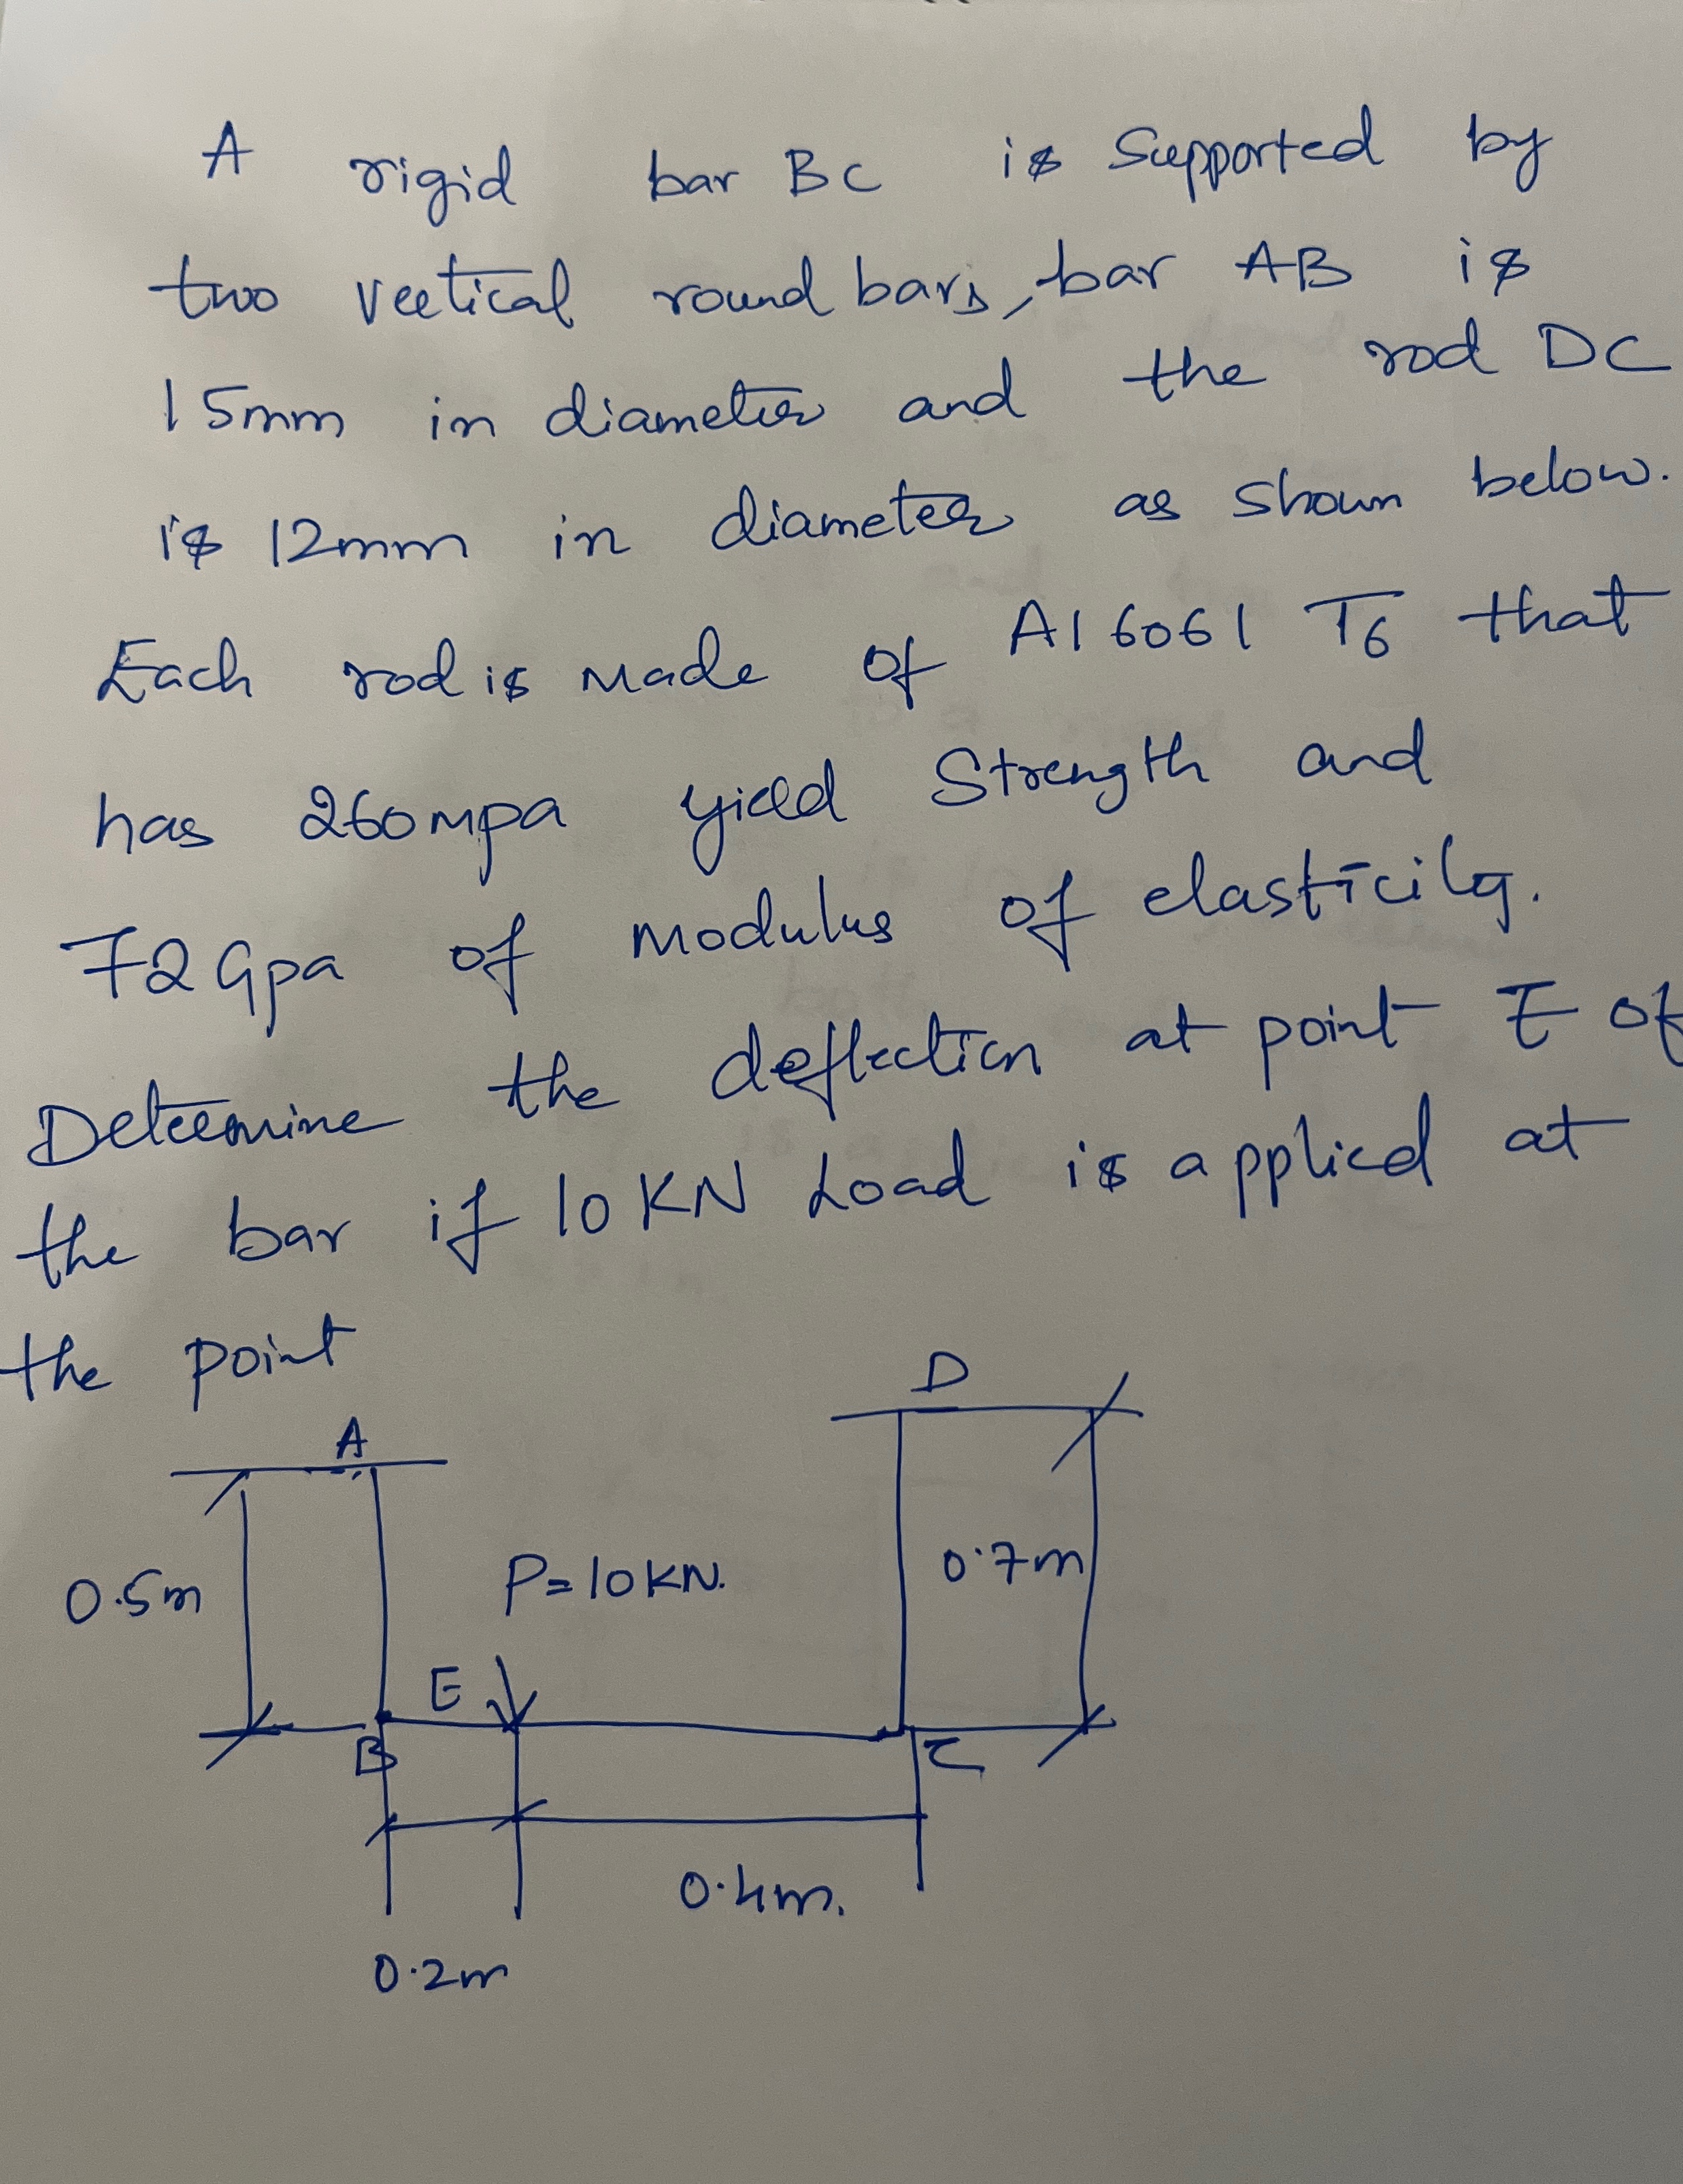 A rigid bar BC is Supported by
two vertical round bars, bar AB is
15mm in diameter and the rod DC
is 12mm in diameter as shown below.
Each rod is made of Al 6061 T6 that
has 260mpa yield Strength and
72Gpa of modulus of elasticity.
Determine the deflection at point E of
the bar if 10KN Load is applied at
the point
D
A
0.5m
P=10KN.
0.7m
E
B
C
0.4m.
0.2m